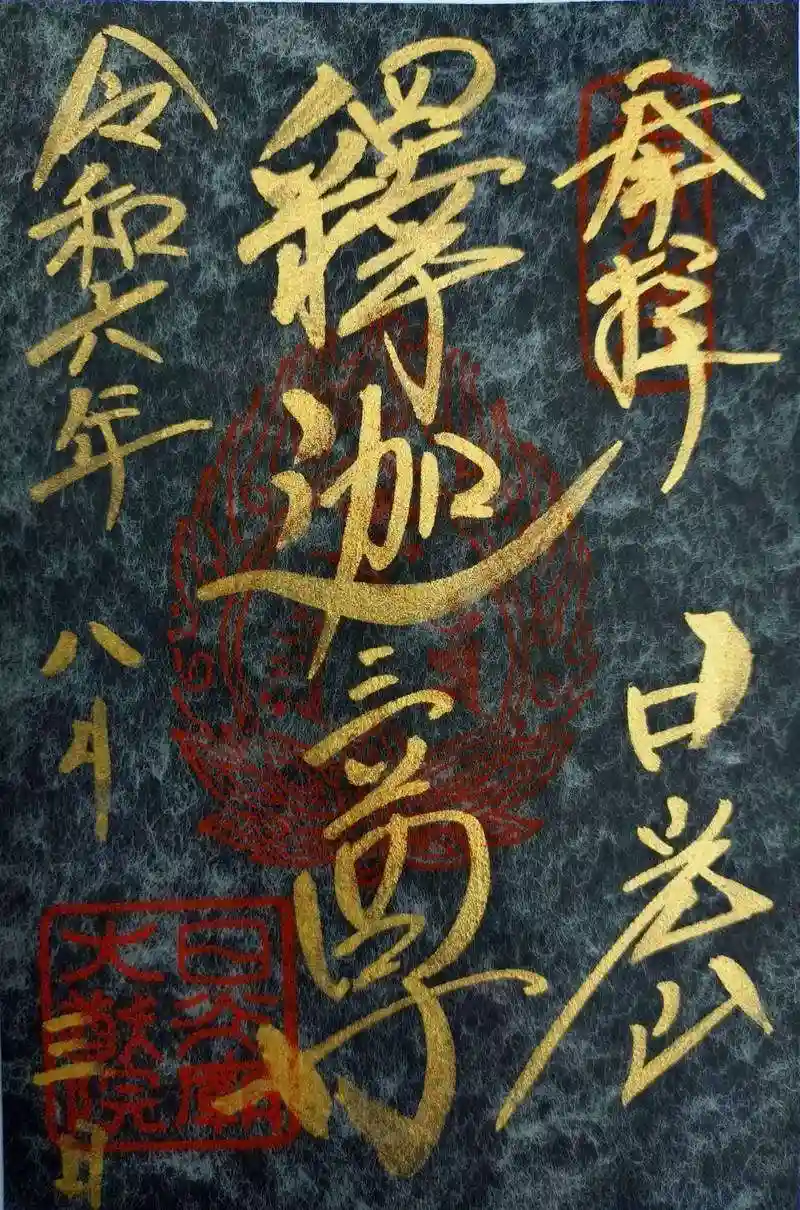 奉拝
日光山
釋迦三尊
令和六年八月三日
日光廟
大猷院